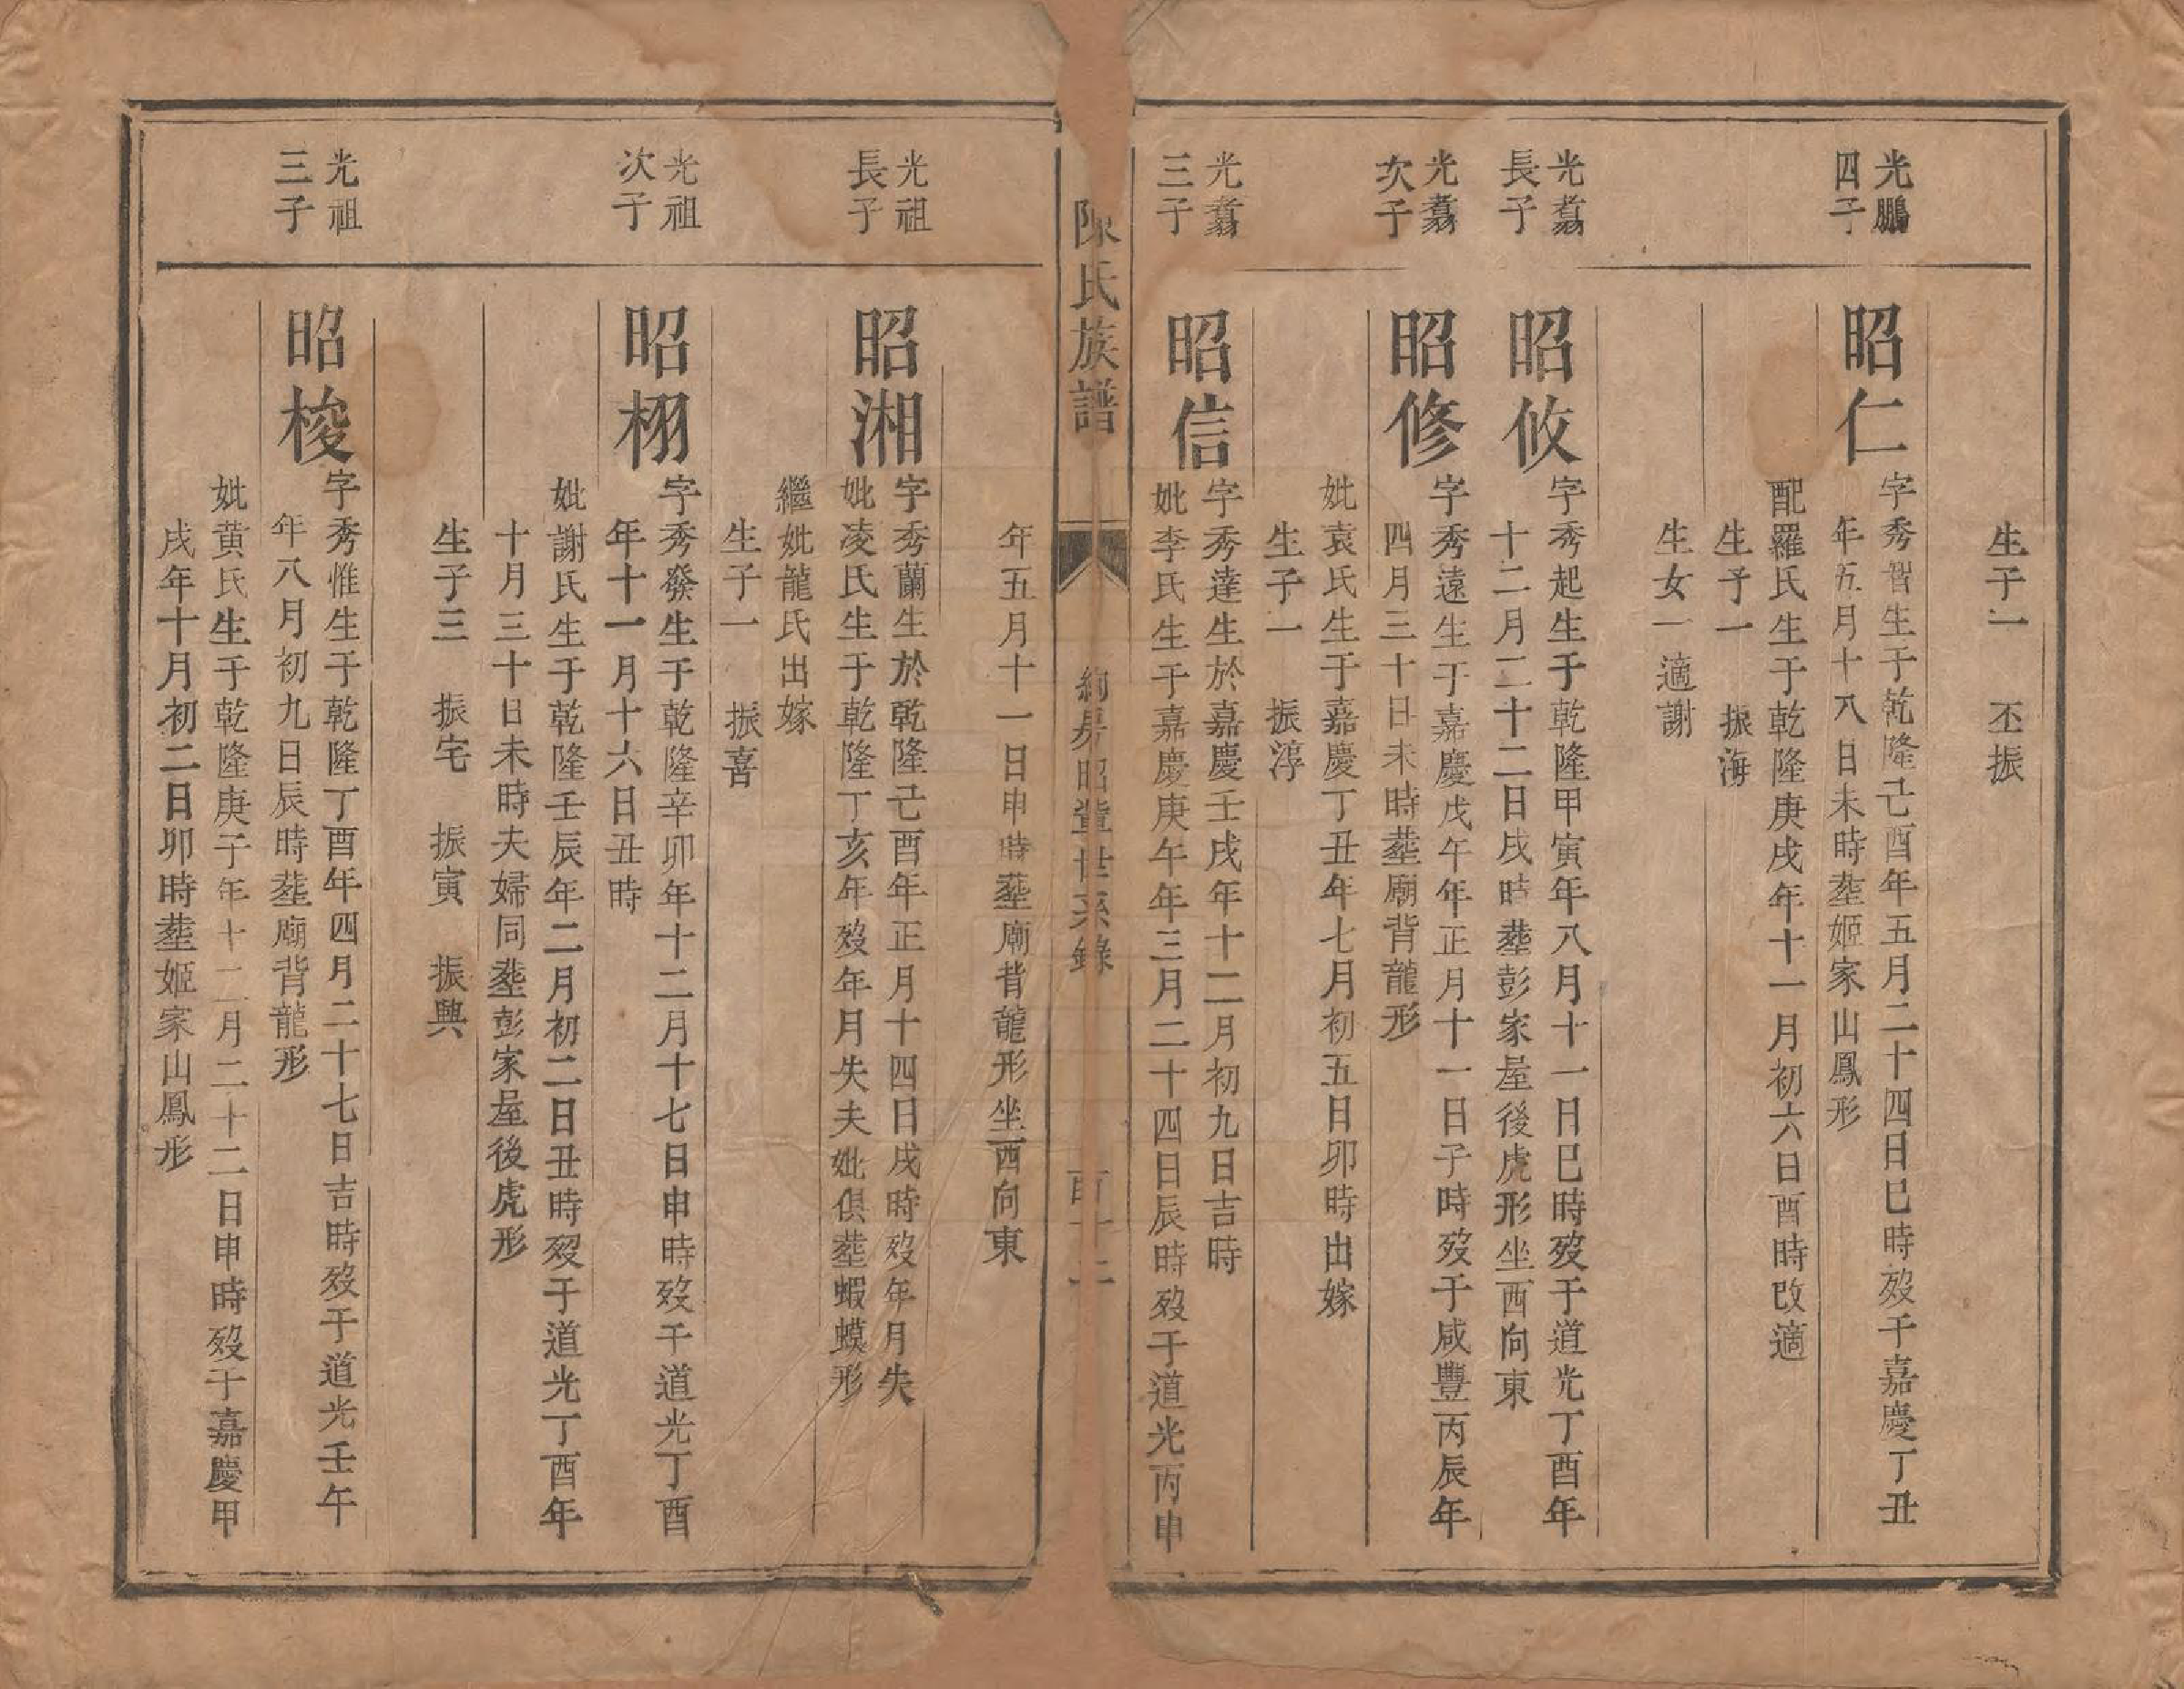 生子一　丕振
光鵬
四子
昭仁
字秀智生于乾隆己酉年五月二十四日巳時歿于嘉慶丁丑
年五月十八日未時塟姬家山鳳形
配羅氏生于乾隆庚戌年十一月初六日酉時改適
生子一　振海
生女一適謝
光翥
長子
昭攸
字秀起生于乾隆甲寅年八月十一日巳時歿于道光丁酉年
十二月二十二日戌時塟彭家屋後虎形坐西向東
光翥
次子
昭修
字秀遠生于嘉慶戊午年正月十一日子時歿于咸豐丙辰年
四月三十日未時塟廟背龍形
妣袁氏生于嘉慶丁丑年七月初五日卯時出嫁
生子一　振淳
光翥
三子
昭信
字秀達生於嘉慶壬戌年十二月初九日吉時
妣李氏生于嘉慶庚午年三月二十四日辰時歿于道光丙申
陳氏族譜
房昭輩世系錄
年五月十一日申時塟廟背龍形坐西向東
光祖
長子
昭湘
字秀蘭生於乾隆己酉年正月十四日戌時歿年月失
妣凌氏生于乾隆丁亥年歿年月失夫妣俱塟蝦蟆形
繼妣龍氏出嫁
生子一　振喜
光祖
次子
昭栩
字秀發生于乾隆辛卯年十二月十七日申時歿于道光丁酉
年十一月十六日丑時
妣謝氏生于乾隆壬辰年二月初二日丑時歿于道光丁酉年
十月三十日未時夫婦同塟彭家屋後虎形
生子三　振宅　振寅　振興
光祖
三子
昭梭
字秀惟生于乾隆丁酉年四月二十七日吉時歿于道光壬午
年八月初九日辰時塟廟背龍形
妣黄氏生于乾隆庚子年十二月二十二日申時歿于嘉慶甲
戌年十月初二日卯時塟姬家山鳳形